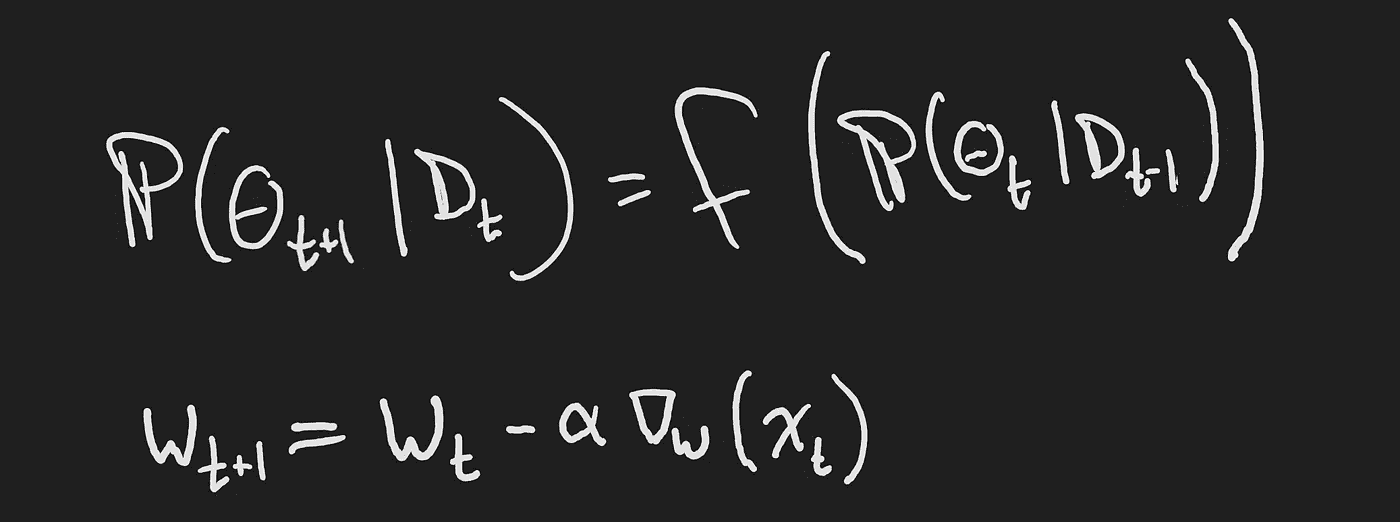 ℙ(θ_{t+1} | D_t) = f(ℙ(θ_t | D_{t-1}))
w_{t+1} = w_t - α ∇_w (x_t)